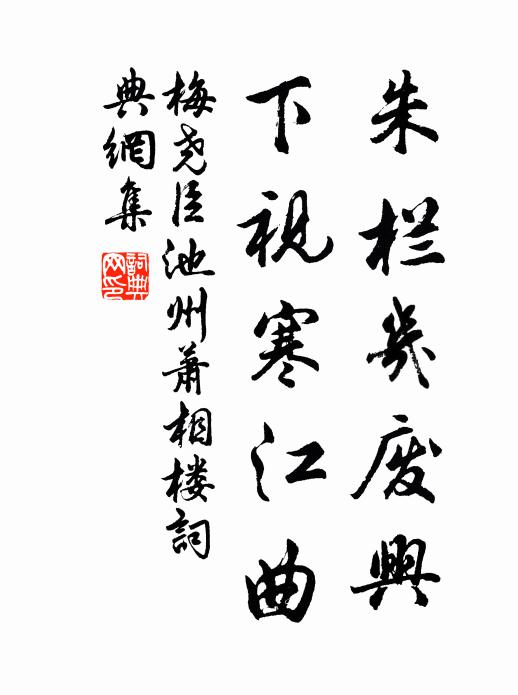 朱栏幾废興
下视寒江曲
梅尧臣池州萧相楼詞
典網集
詞典网印